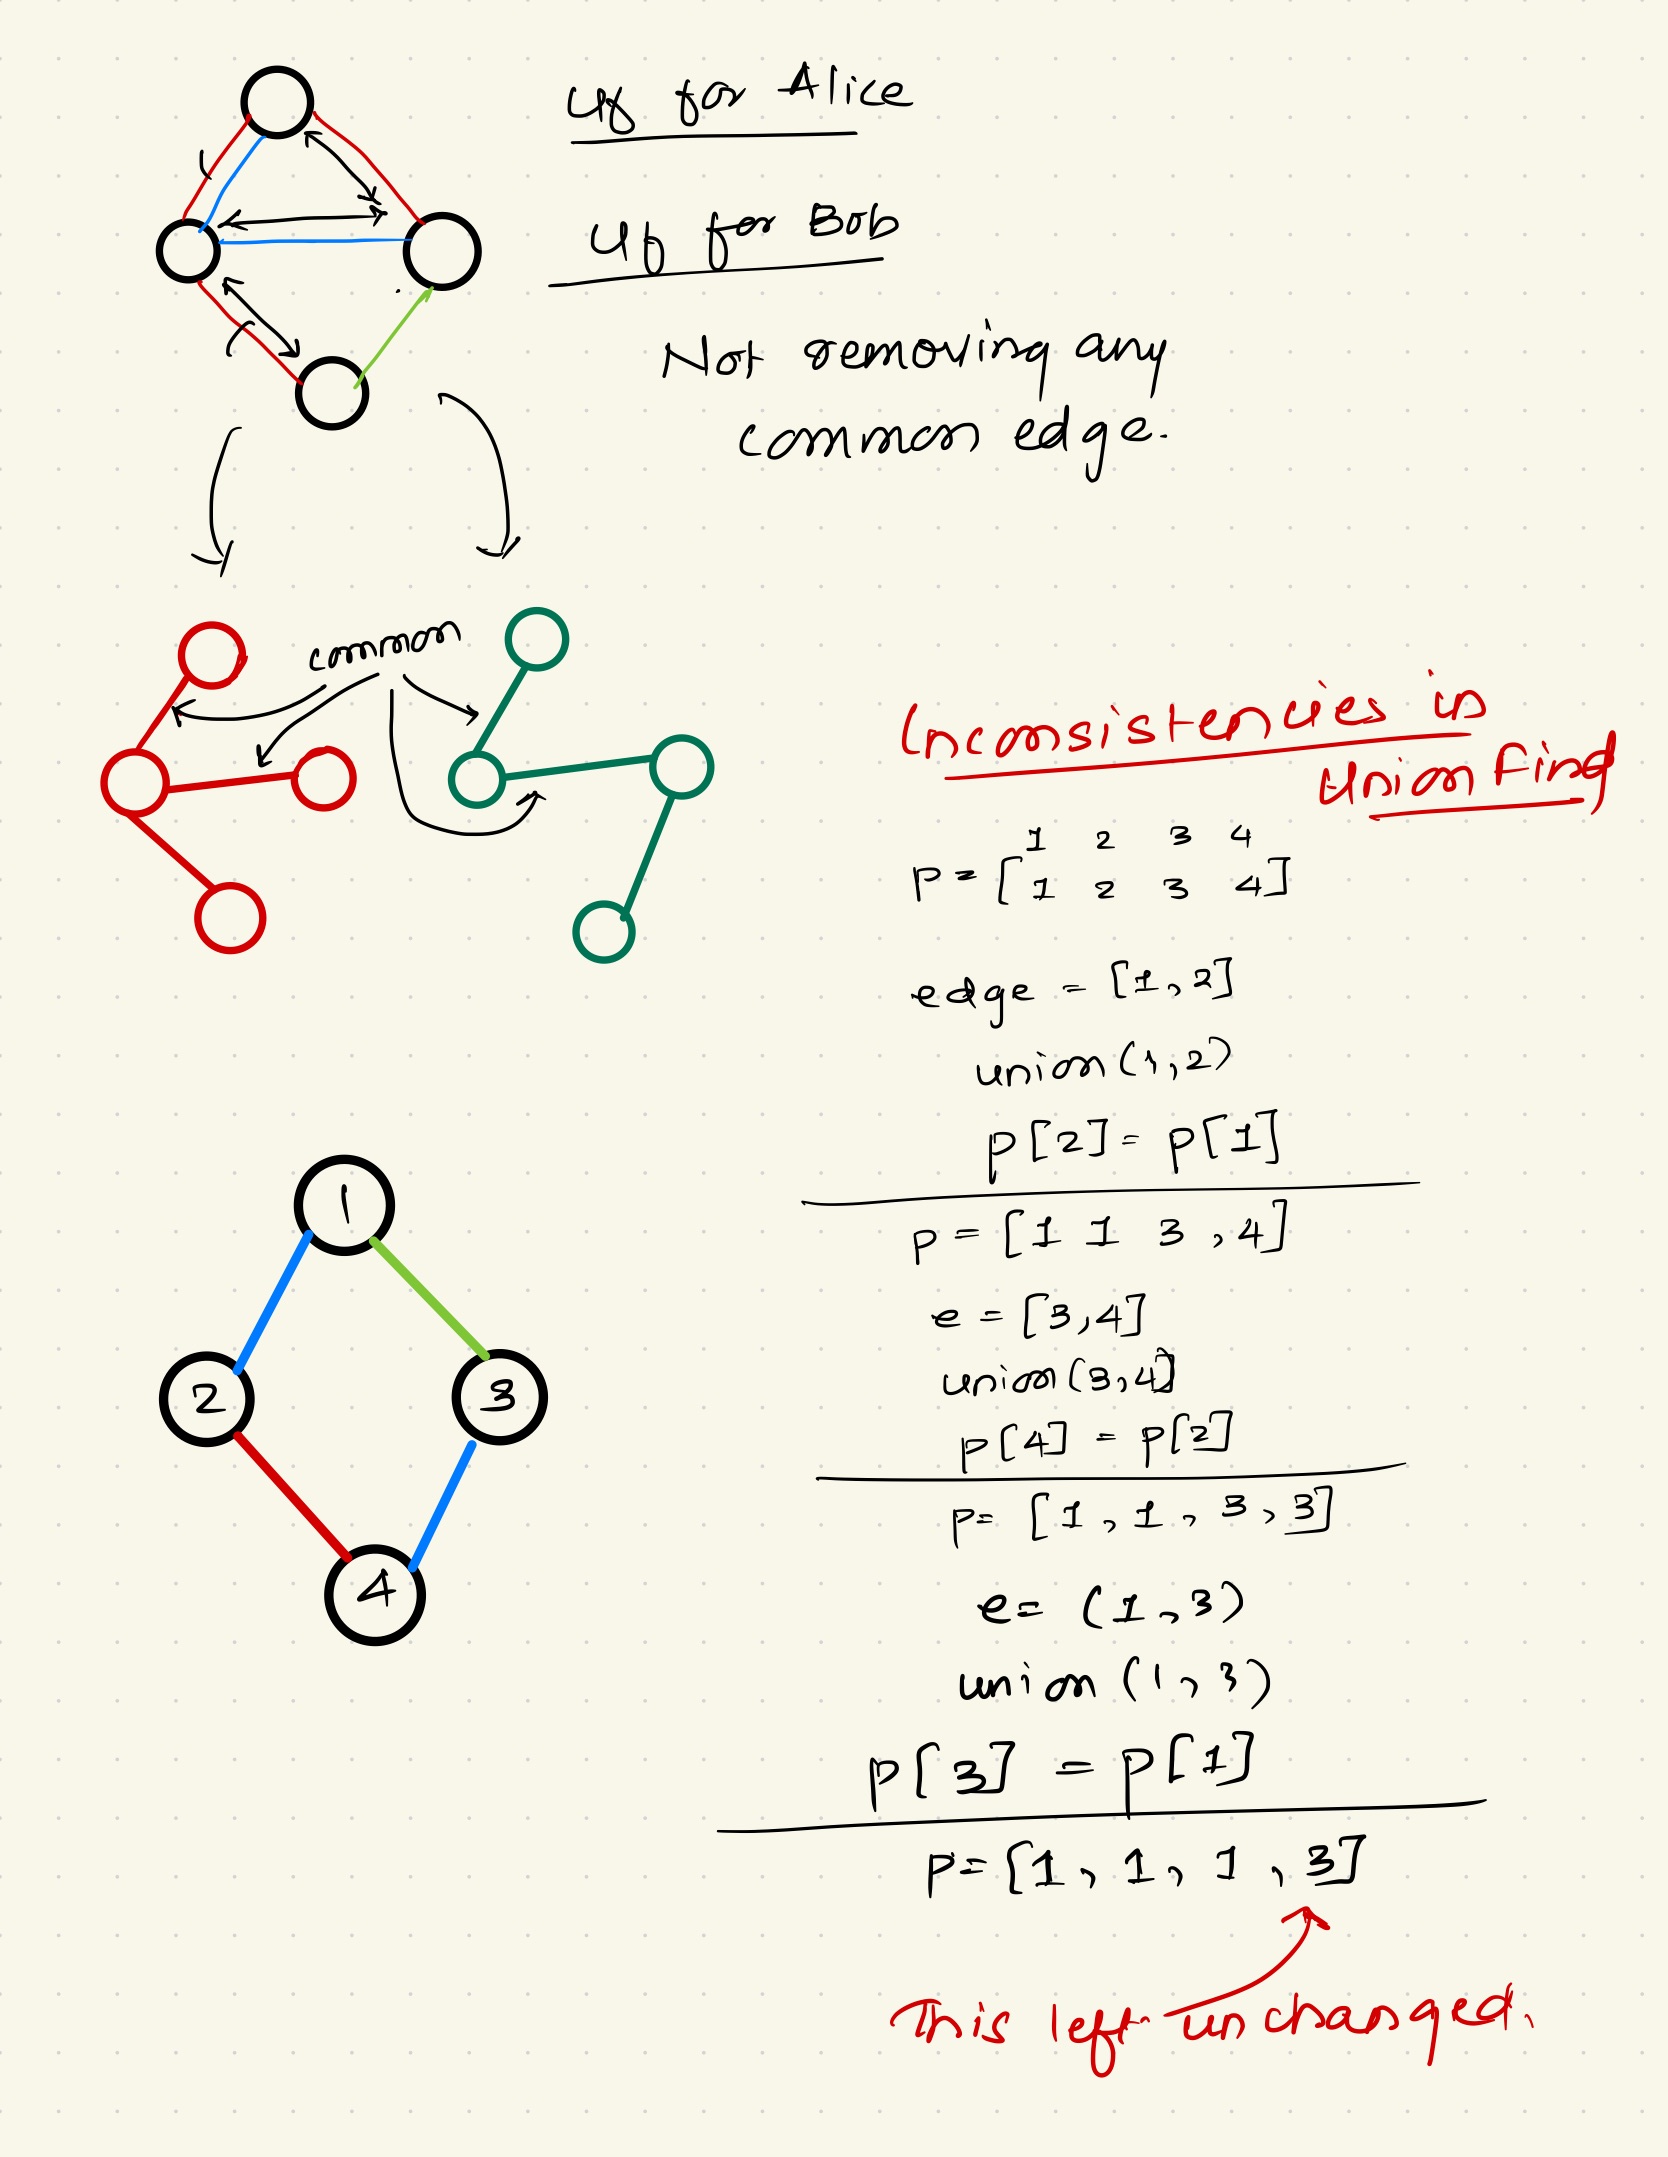 Uf for Alice
Uf for Bob
Not removing any
common edge.
common
Inconsistencies in
Union Find
1 2 3 4
P = [1 2 3 4]
edge = [1,2]
union(1,2)
P[2] = P[1]
P = [1 1 3 ,4]
e = [3,4]
union(3,4]
P[4] = P[2]
P= [1,1,3,3]
e= (1,3)
union(1,3)
P[3] = P[1]
P=[1,1,1,3]
This left unchanged.
1
2
3
4